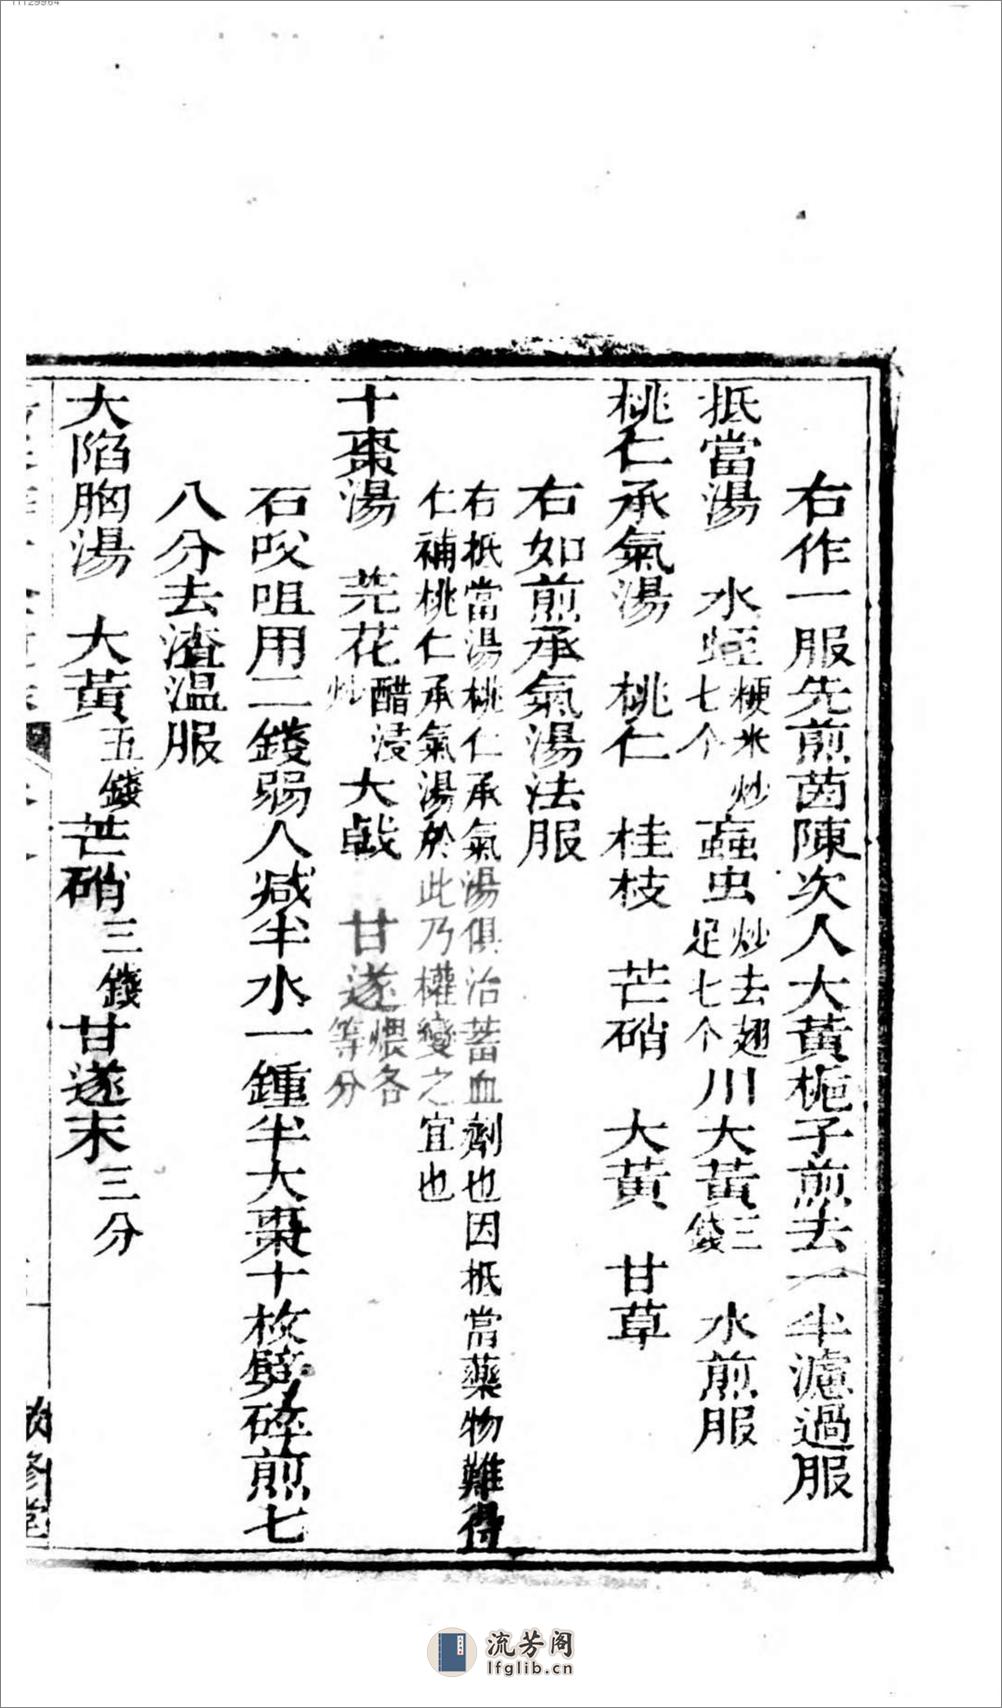 11129964
右作一服先煎茵陳次人大黃梔子煎去一半濾過服
抵當湯　水蛭粳米炒七个　蝱虫炒去翅足七个　川大黃三錢　水煎服
桃仁承氣湯　桃仁　桂枝　芒硝　大黃　甘草
右如煎承氣湯法服
右抵當湯桃仁承氣湯俱治蓄血劑也因抵當藥物難得
仁補桃仁承氣湯於此乃權變之宜也
十棗湯　芫花醋浸炒　大戟　甘遂煨各等分
石㕮咀用二錢弱人减半水一鍾半大棗十枚劈碎煎七
八分去渣温服
大陷胸湯　大黃五錢　芒硝三錢　甘遂末三分
修堂
流芳阁
lfglib.cn